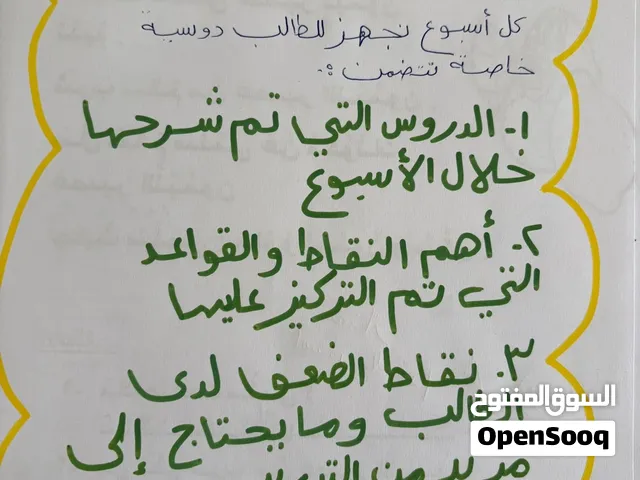 كل أسبوع نجهز للطالب دوسية
خاصة تتضمن :-
١- الدروس التي تم شرحها
خلال الأسبوع
٢- أهم النقاط والقواعد
التي تم التركيز عليها
٣. نقاط الضعف لدى
الطالب وما يحتاج إلى
السوق المفتوح
OpenSooq